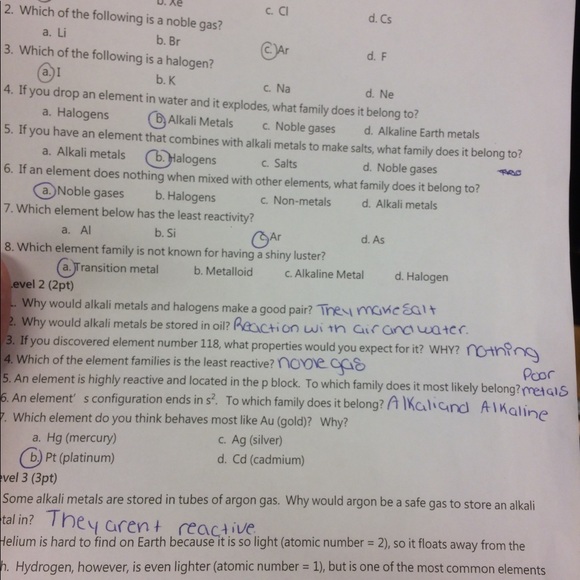 b. Xe
2. Which of the following is a noble gas?
a. Li b. Br c. Cl d. Cs
3. Which of the following is a halogen? c. Ar d. F
a. I b. K c. Na d. Ne
4. If you drop an element in water and it explodes, what family does it belong to?
a. Halogens b. Alkali Metals c. Noble gases d. Alkaline Earth metals
5. If you have an element that combines with alkali metals to make salts, what family does it belong to?
a. Alkali metals b. Halogens c. Salts d. Noble gases
6. If an element does nothing when mixed with other elements, what family does it belong to?
a. Noble gases b. Halogens c. Non-metals d. Alkali metals
7. Which element below has the least reactivity?
a. Al b. Si c. Ar d. As
8. Which element family is not known for having a shiny luster?
a. Transition metal b. Metalloid c. Alkaline Metal d. Halogen
Level 2 (2pt)
. Why would alkali metals and halogens make a good pair? They make Salt
2. Why would alkali metals be stored in oil? Reaction with air and water.
3. If you discovered element number 118, what properties would you expect for it? WHY? nothing
4. Which of the element families is the least reactive? noble gas
5. An element is highly reactive and located in the p block. To which family does it most likely belong? Poor metals
6. An element's configuration ends in s². To which family does it belong? Alkali and Alkaline
7. Which element do you think behaves most like Au (gold)? Why?
a. Hg (mercury) c. Ag (silver)
b. Pt (platinum) d. Cd (cadmium)
evel 3 (3pt)
Some alkali metals are stored in tubes of argon gas. Why would argon be a safe gas to store an alkali
tal in? They arent reactive
Helium is hard to find on Earth because it is so light (atomic number = 2), so it floats away from the
h. Hydrogen, however, is even lighter (atomic number = 1), but is one of the most common elements